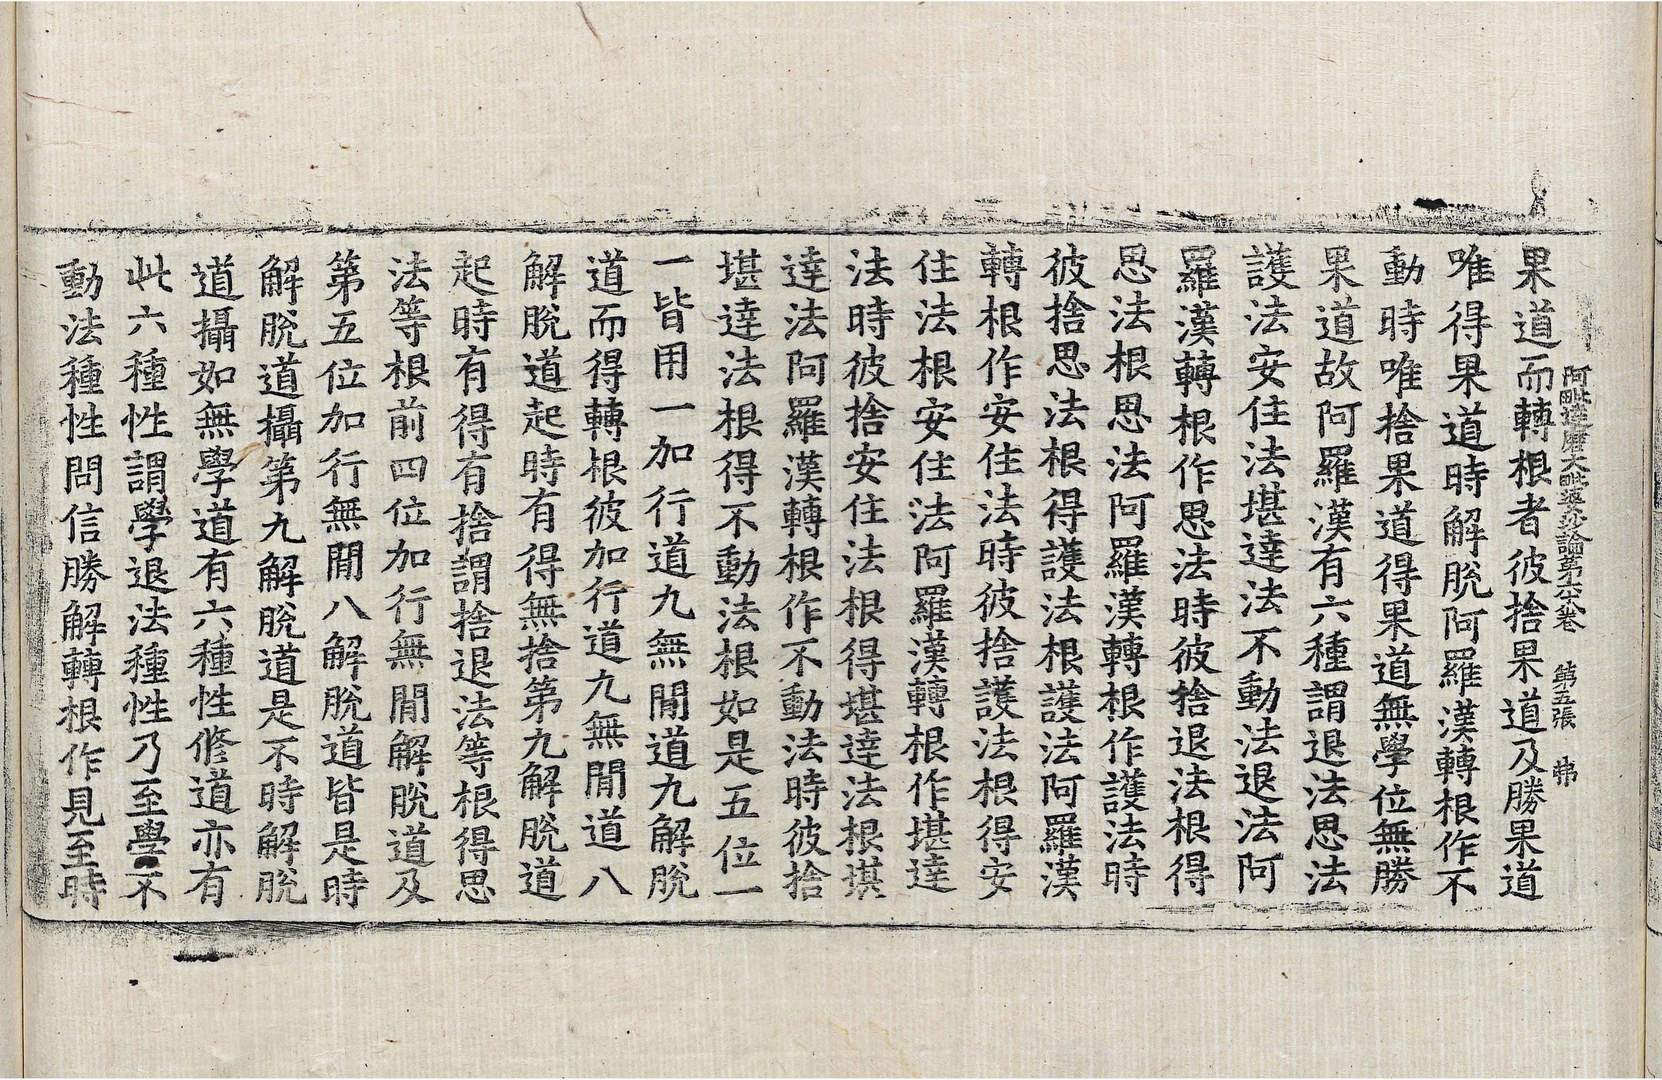 阿毗達磨大毗婆沙論第六十八卷 第五張 弟
果道而轉根者彼捨果道及勝果道
唯得果道時解脫阿羅漢轉根作不
動時唯捨果道得果道無學位無勝
果道故阿羅漢有六種謂退法思法
護法安住法堪達法不動法退法阿
羅漢轉根作思法時彼捨退法根得
思法根思法阿羅漢轉根作護法時
彼捨思法根得護法根護法阿羅漢
轉根作安住法時彼捨護法根得安
住法根安住法阿羅漢轉根作堪達
法時彼捨安住法根得堪達法根堪
達法阿羅漢轉根作不動法時彼捨
堪達法根得不動法根如是五位一
一皆用一加行道九無閒道九解脫
道而得轉根彼加行道九無閒道八
解脫道起時有得無捨第九解脫道
起時有得有捨謂捨退法等根得思
法等根前四位加行無閒解脫道及
第五位加行無閒八解脫道皆是時
解脫道攝第九解脫道是不時解脫
道攝如無學道有六種性修道亦有
此六種性謂學退法種性乃至學不
動法種性問信勝解轉根作見至時